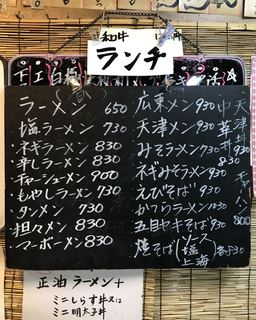 和牛
ランチ
ラーメン 650
塩ラーメン 730
ネギラーメン 830
辛しラーメン 830
チャーシューメン 900
もやしラーメン 730
タンメン 730
担々メン 830
マーボーメン 830
広東メン 930
天津メン 930
みそラーメン 930
ネギみそラーメン 930
えびそば 930
かつらラーメン 1030
五目ヤキそば 930
焼そば(ソース 塩 上海 各830
中華丼 830
天津丼 930
チャーハン 800
正油ラーメン+
ミニしらす丼又は
ミニ明太子丼